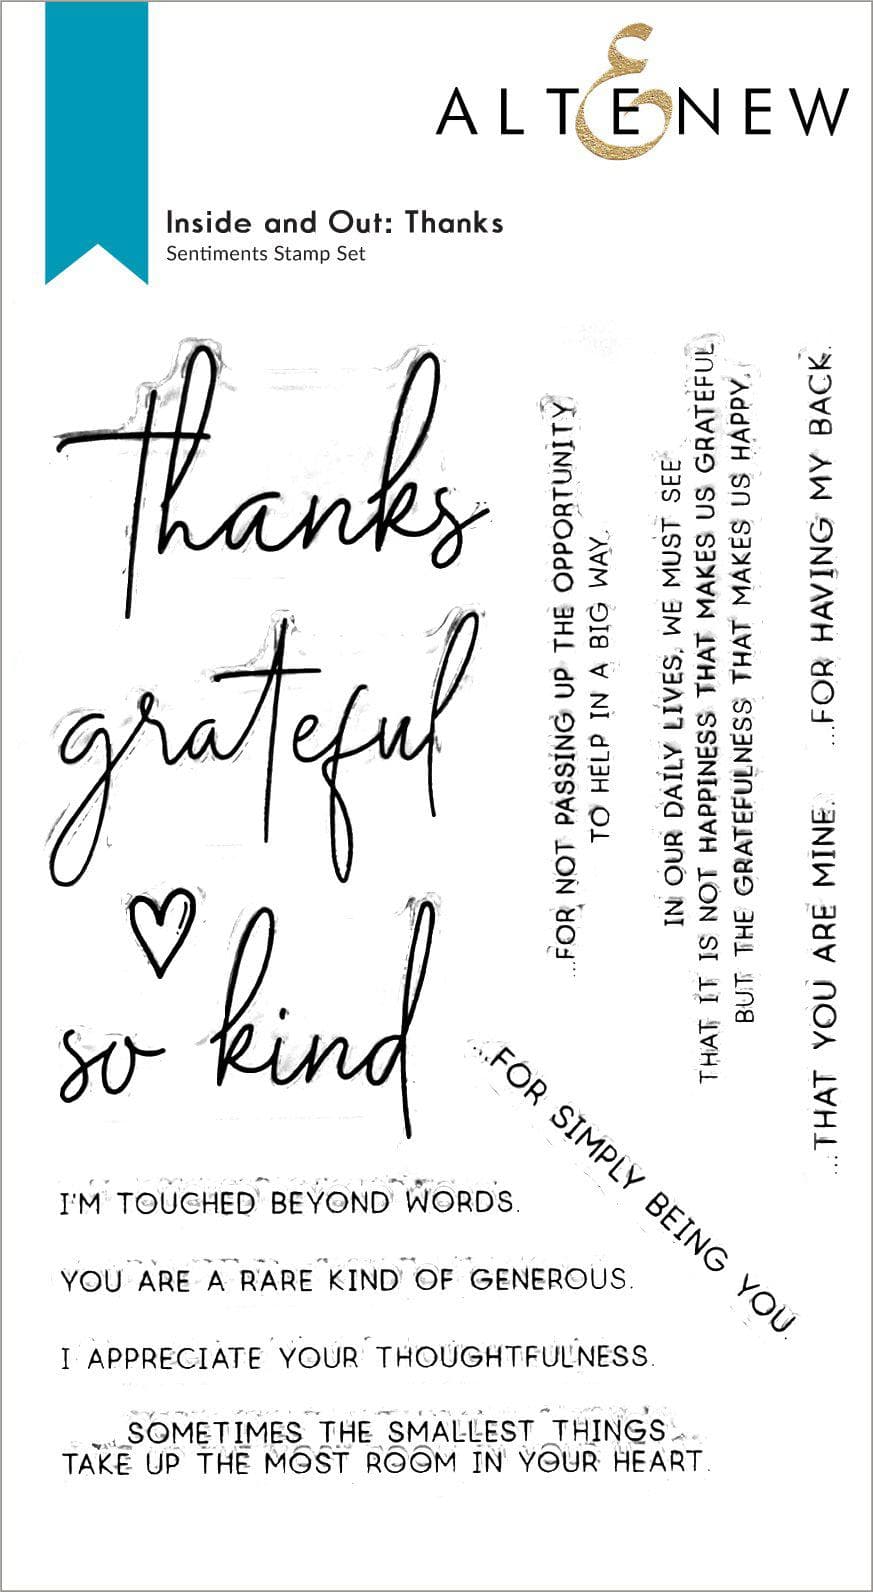 ALTENEW
Inside and Out: Thanks
Sentiments Stamp Set
thanks
grateful
so kind
...FOR NOT PASSING UP THE OPPORTUNITY
TO HELP IN A BIG WAY.
IN OUR DAILY LIVES, WE MUST SEE
THAT IT IS NOT HAPPINESS THAT MAKES US GRATEFUL,
BUT THE GRATEFULNESS THAT MAKES US HAPPY.
...FOR HAVING MY BACK.
...THAT YOU ARE MINE.
...FOR SIMPLY BEING YOU.
I'M TOUCHED BEYOND WORDS.
YOU ARE A RARE KIND OF GENEROUS.
I APPRECIATE YOUR THOUGHTFULNESS.
SOMETIMES THE SMALLEST THINGS
TAKE UP THE MOST ROOM IN YOUR HEART.